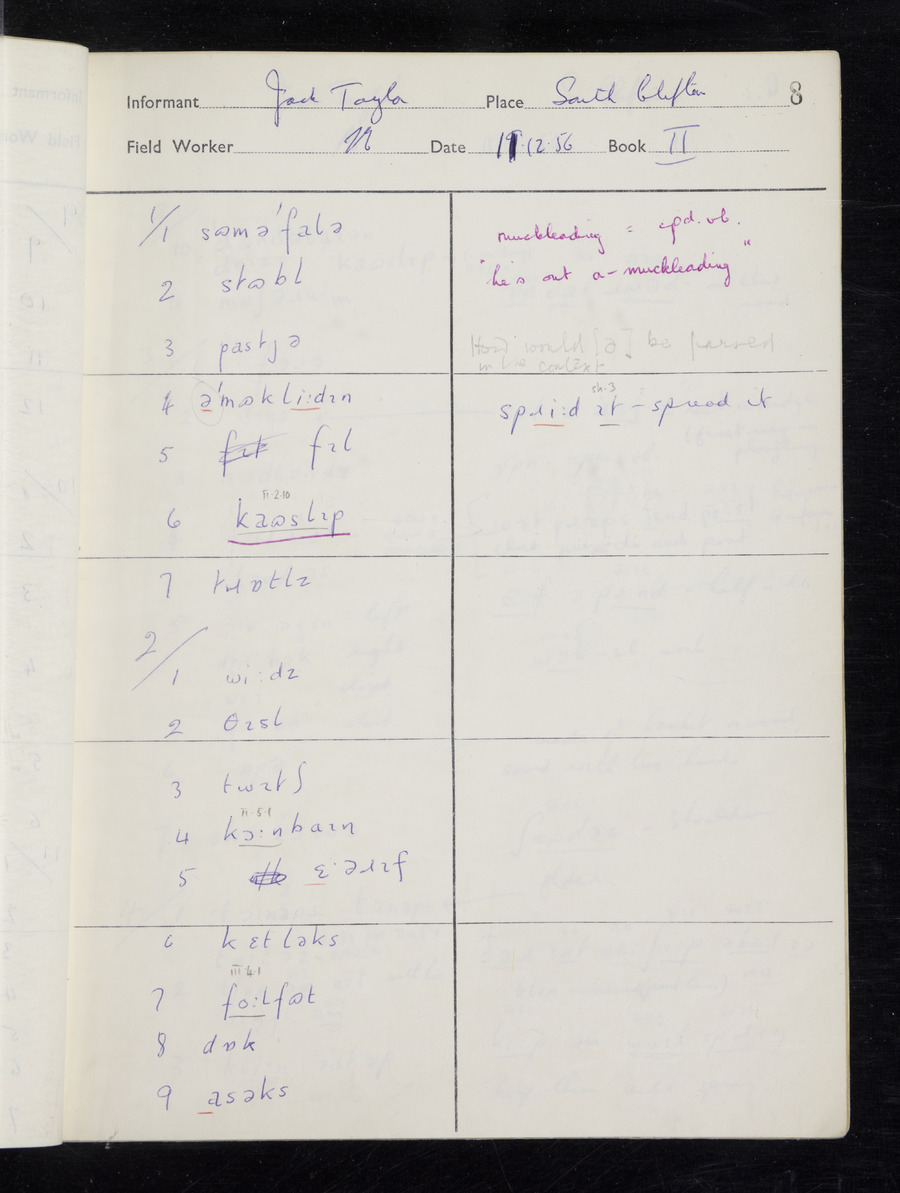 Informant Jack Taylor Place South Clifton 8
Field Worker N Date 11·12·56 Book II
1/
1 sɷmə'falə
2 stɷbl
3 pastjə
4 ə'mɷkli:dɪn
5 fɪl
II·2·10
6 kaɷslɪp
7 tɹɒtlz
2/
1 wi:dz
2 θɪsl
3 twɪtʃ
II·5·1
4 kɔ:nbaɪn
5 ɛ·əɹɪf
6 kɛtləks
III·4·1
7 fo:lfɷt
8 dɒk
9 asəks
muckleading = cpd. vb.
"he's out a-muckleading"
How would [ə] be parsed
in this context
sh·3
spɹi:d ɪt – spread it